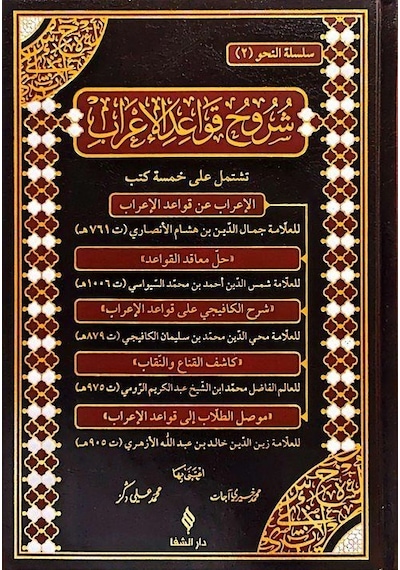 سلسلة النحو (٢)
شُرُوحُ قَوَاعِدِ الْإِعْرَابِ
تشتمل على خمسة كتب
الإعراب عن قواعد الإعراب
للعلامة جمال الدّين بن هشام الأنصاري (ت ٧٦١هـ)
«حلّ معاقد القواعد»
للعلامة شمس الدّين أحمد بن محمّد السّيواسي (ت ١٠٠٦هـ)
«شرح الكافيجي على قواعد الإعراب»
للعلامة محي الدّين محمّد بن سليمان الكافيجي (ت ٨٧٩هـ)
«كاشف القناع والنّقاب»
للعالم الفاضل محمّد ابن الشّيخ عبد الكريم الرّومي (ت ٩٧٥هـ)
«موصل الطلّاب إلى قواعد الإعراب»
للعلامة زين الدّين خالد بن عبد اللّه الأزهري (ت ٩٠٥هـ)
اعتنى بها
محمد خيري آجات
محمد علي دكز
دار الشفا